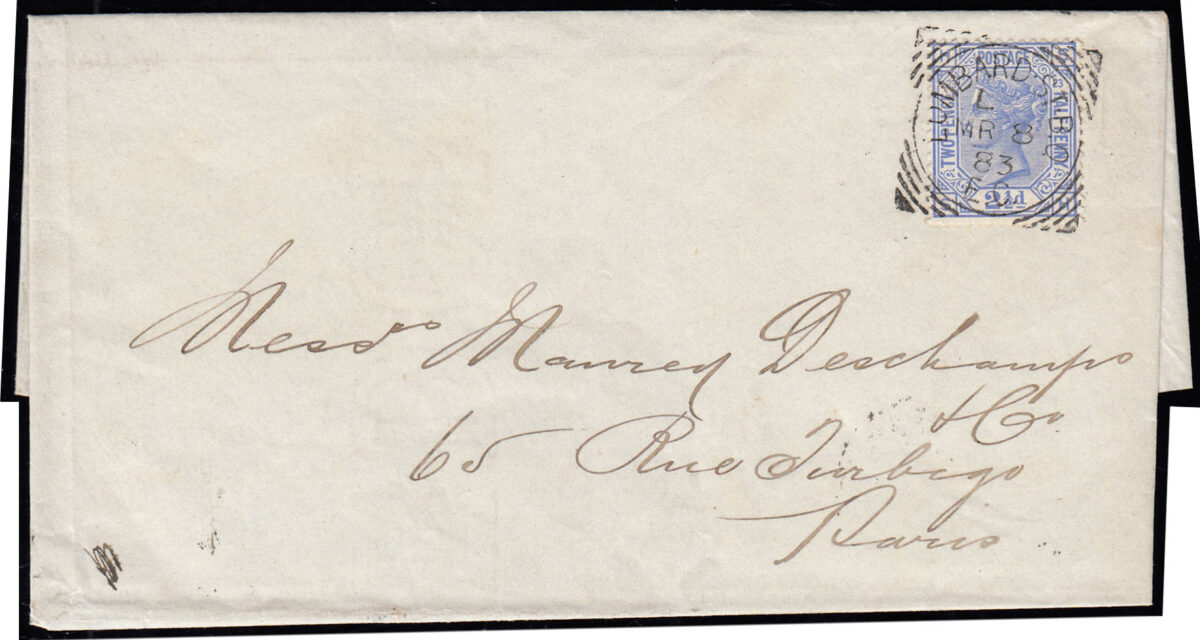 POSTAGE
TWO PENCE HALFPENNY
2½d
LOMBARD ST. B.O
L
MR 8
83
E.C
Messrs Maurey Deschamps
& Co
65 Rue Turbigo
Paris